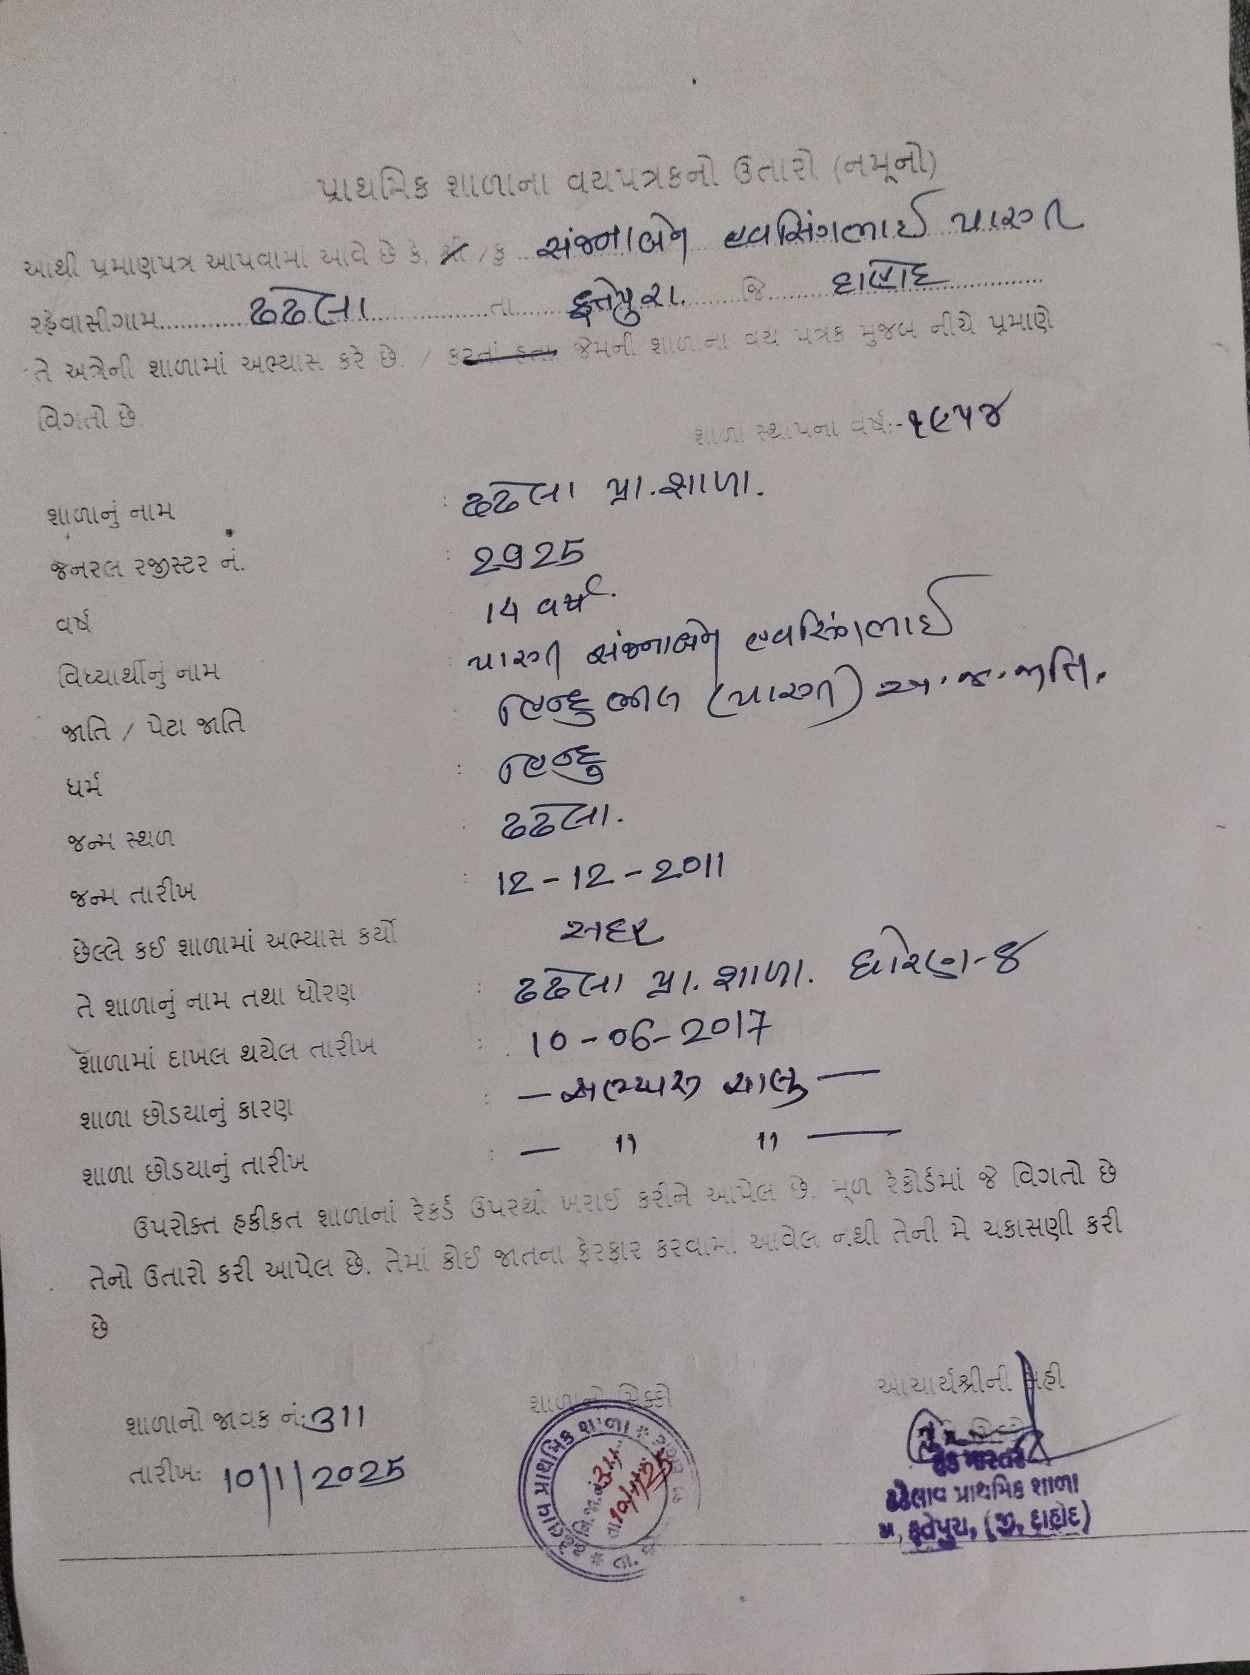 પ્રાથમિક શાળાના વયપત્રકનો ઉતારો (નમૂનો)
આથી પ્રમાણપત્ર આપવામાં આવે છે કે, શ્રી /કુ સંજનાબેન લવસિંગભાઈ પારગી
રહેવાસીગામ ઢઢેલા તા ફતેપુરા. જિ દાહોદ
તે અત્રેની શાળામાં અભ્યાસ કરે છે / કરતાં હતા જેમની શાળાના વય પત્રક મુજબ નીચે પ્રમાણે
વિગતો છે
શાળા સ્થાપના વર્ષ:- ૧૯૫૪
શાળાનું નામ : ઢઢેલા પ્રા. શાળા.
જનરલ રજીસ્ટર નં. : 2925
વર્ષ 14 વર્ષ.
વિધ્યાર્થીનું નામ : પારગી સંજનાબેન લવસિંગભાઈ
જાતિ / પેટા જાતિ : હિન્દુ ભીલ (પારગી) અ.જ.જાતિ.
ધર્મ : હિન્દુ
જન્મ સ્થળ : ઢઢેલા.
જન્મ તારીખ : 12-12-2011
છેલ્લે કઈ શાળામાં અભ્યાસ કર્યો સદર
તે શાળાનું નામ તથા ધોરણ : ઢઢેલા પ્રા. શાળા. ધોરણ-૪
શાળામાં દાખલ થયેલ તારીખ : 10-06-2017
શાળા છોડયાનું કારણ : — અભ્યાસ ચાલુ —
શાળા છોડયાનું તારીખ : — " " —
ઉપરોક્ત હકીકત શાળાનાં રેકર્ડ ઉપરથી ખરાઈ કરીને આપેલ છે. મૂળ રેકોર્ડમાં જે વિગતો છે
તેનો ઉતારો કરી આપેલ છે. તેમાં કોઈ જાતના ફેરફાર કરવામાં આવેલ નથી તેની મે ચકાસણી કરી
છે
શાળાનો જાવક નં: 311
શાળાનો સિક્કો
આચાર્યશ્રીની સહી
તારીખ: 10/1/2025
હેડ માસ્તર
ઢઢેલાવ પ્રાથમિક શાળા
મ, ફતેપુરા, (જી, દાહોદ)